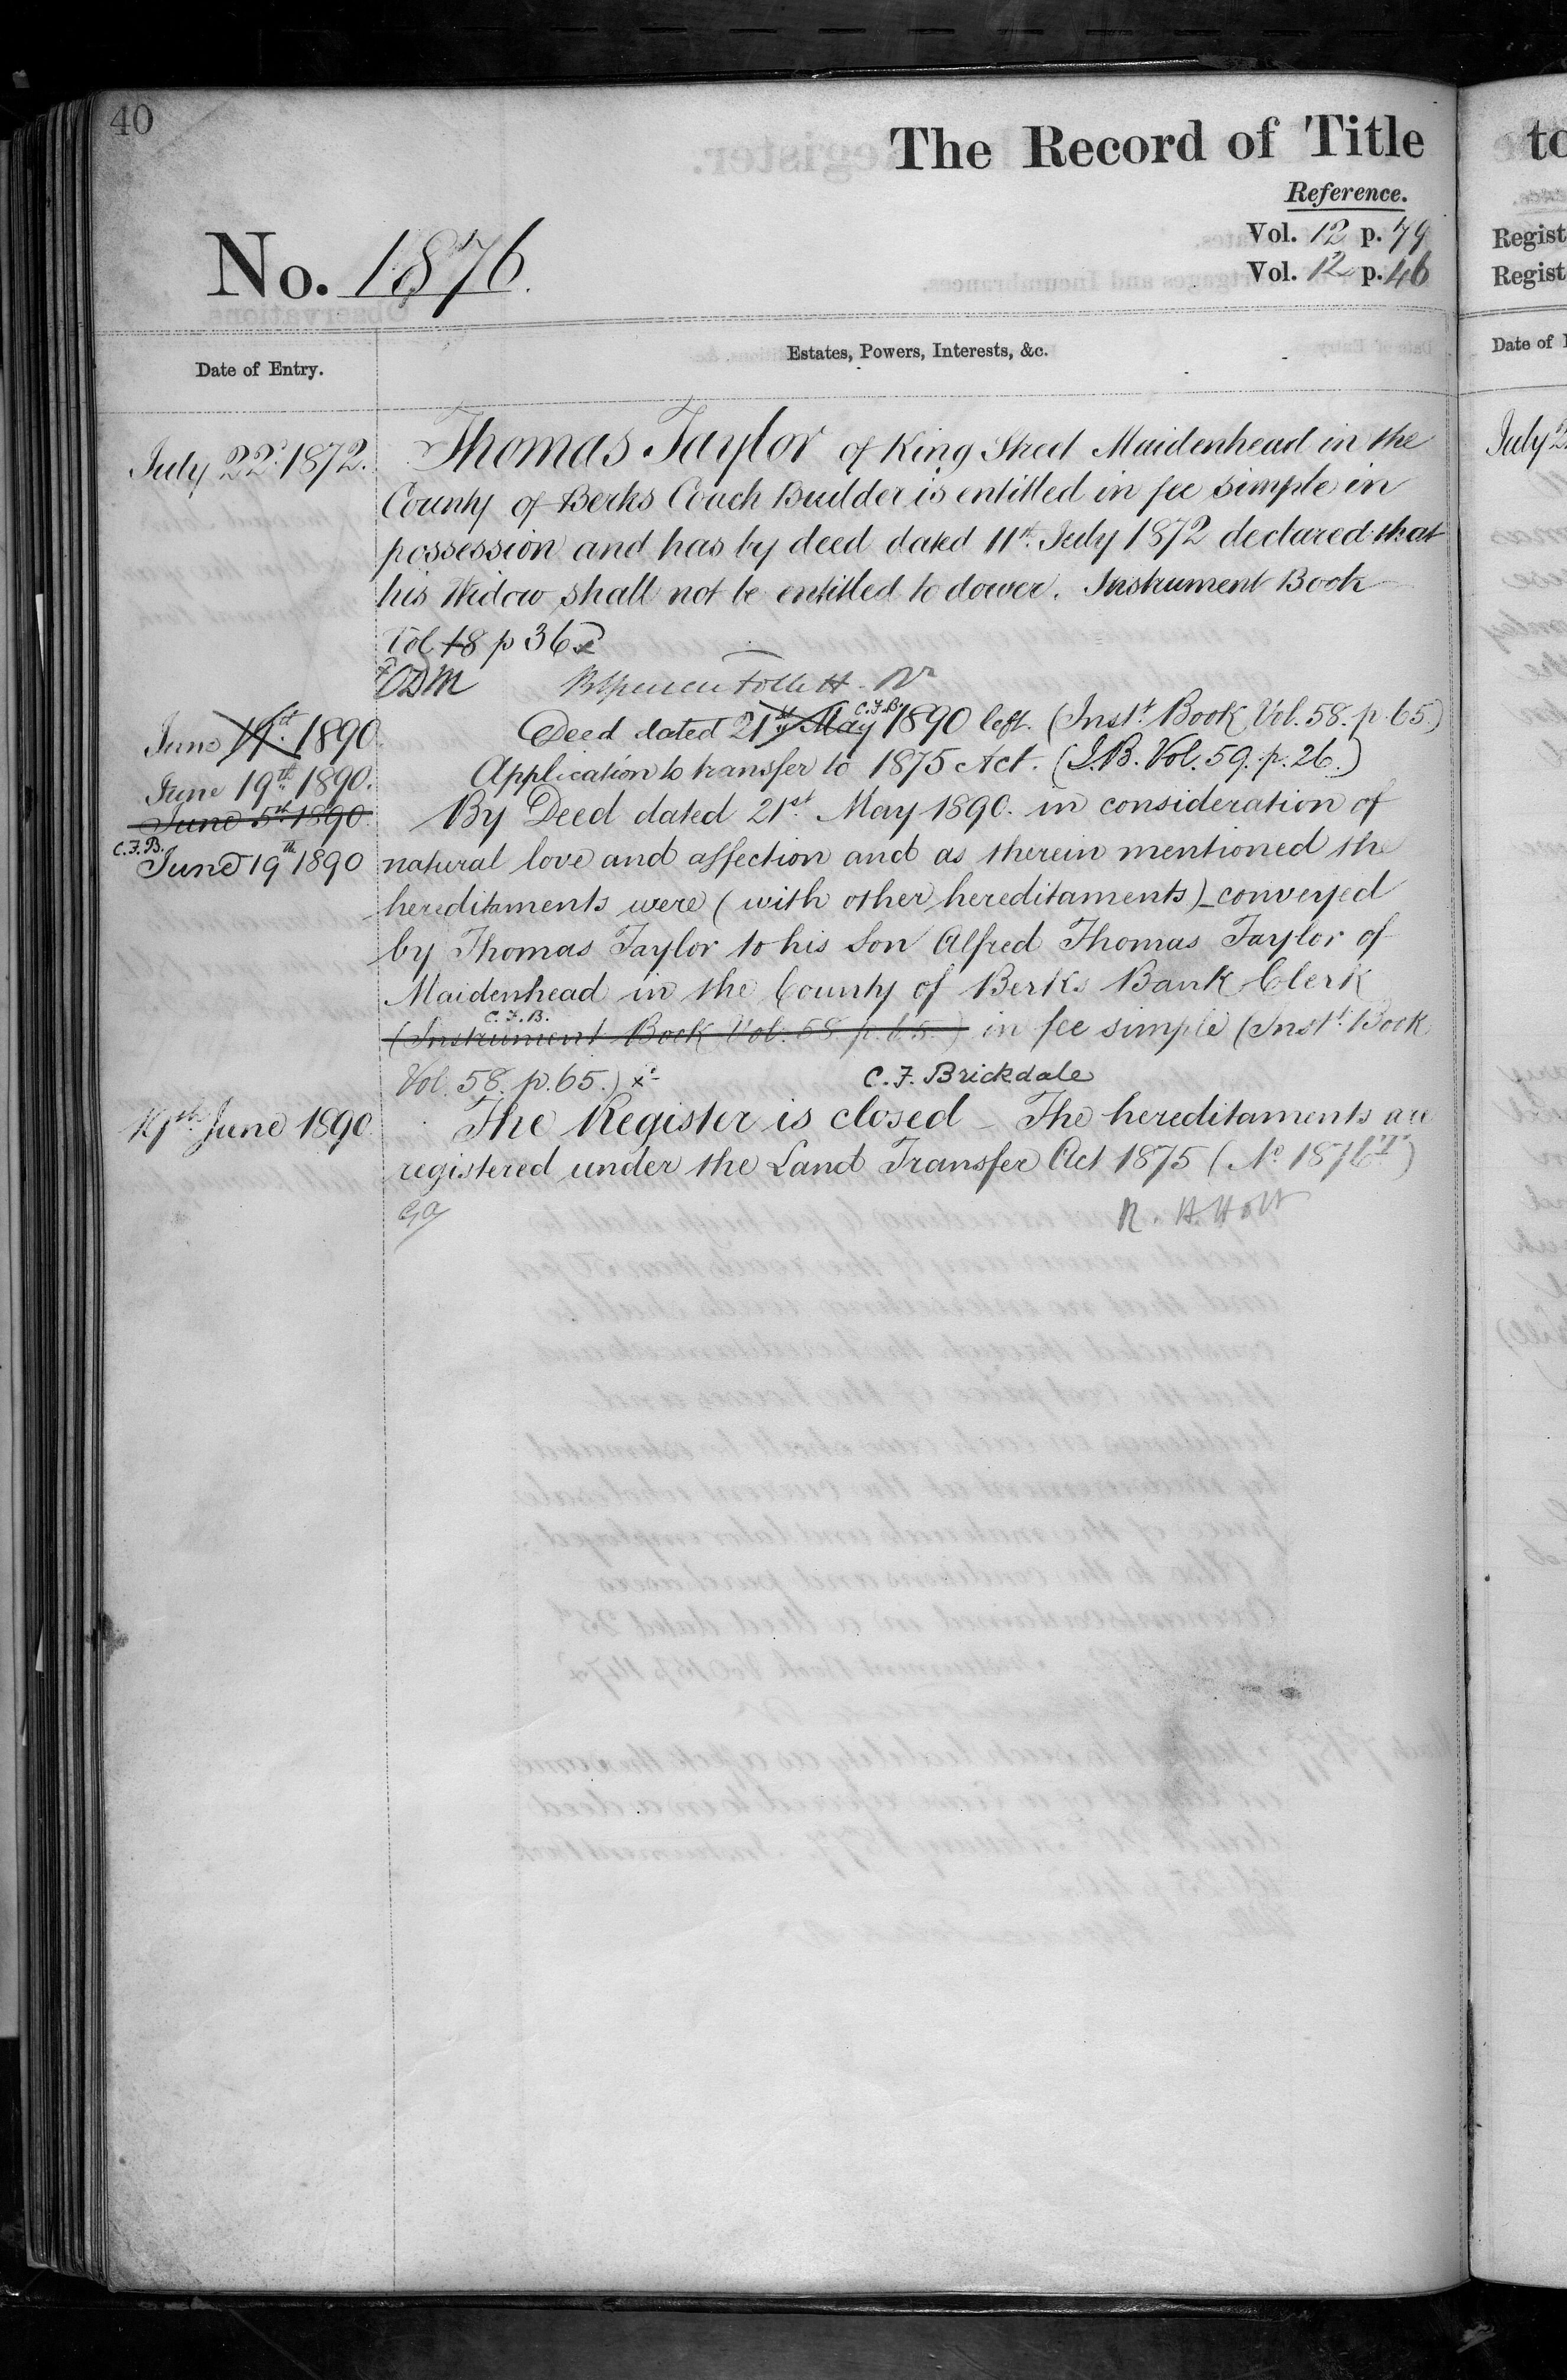 40
The Record of Title
Reference.
Vol. 12 p. 79
Vol. 12 p. 46
No. 1876.
Date of Entry.
Estates, Powers, Interests, &c.
July 22d 1872.
Thomas Taylor of King Street Maidenhead in the
County of Berks Coach Builder is entitled in fee simple in
possession and has by deed dated 11th July 1872 declared that
his Widow shall not be entitled to dower. Instrument Book
Vol 18 p 36
Brent Spencer Follett
June 1890
Deed dated 21st May 1890 left. (Inst. Book Vol. 58. p. 65.)
C.F.B.
June 19th 1890.
Application to transfer to 1875 Act. (I.B. Vol. 59. p. 26.)
June 5th 1890
By Deed dated 21st May 1890. in consideration of
C.F.B.
June 19th 1890
natural love and affection and as therein mentioned the
hereditaments were (with other hereditaments) conveyed
by Thomas Taylor to his Son Alfred Thomas Taylor of
Maidenhead in the County of Berks Bank Clerk
C.F.B.
(Instrument Book Vol. 58 p. 65.) in fee simple (Inst. Book
Vol. 58. p. 65.) x
C. F. Brickdale
19th June 1890
The Register is closed - The hereditaments are
registered under the Land Transfer Act 1875 (No 1876T)
R. H. Holt
to
Regist
Regist
Date of
July 2